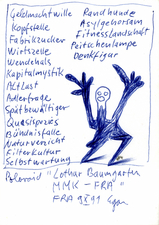 Geldmachtwille
Kopfstelle
Fabrikzucker
Wirtszelle
Wendehals
Kapitalmystik
Altlast
Adlerfrage
Spätbewältiger
Quasispezies
Bündnisfalle
Naturverzicht
Filterkultur
Selbstwartung
Randhunde
Asylgehorsam
Fitnesslandschaft
Peitschenlampe
Denkfigur
Polaroid "Lothar Baumgarten
MMK - FRA"
FRA 9 XI 91